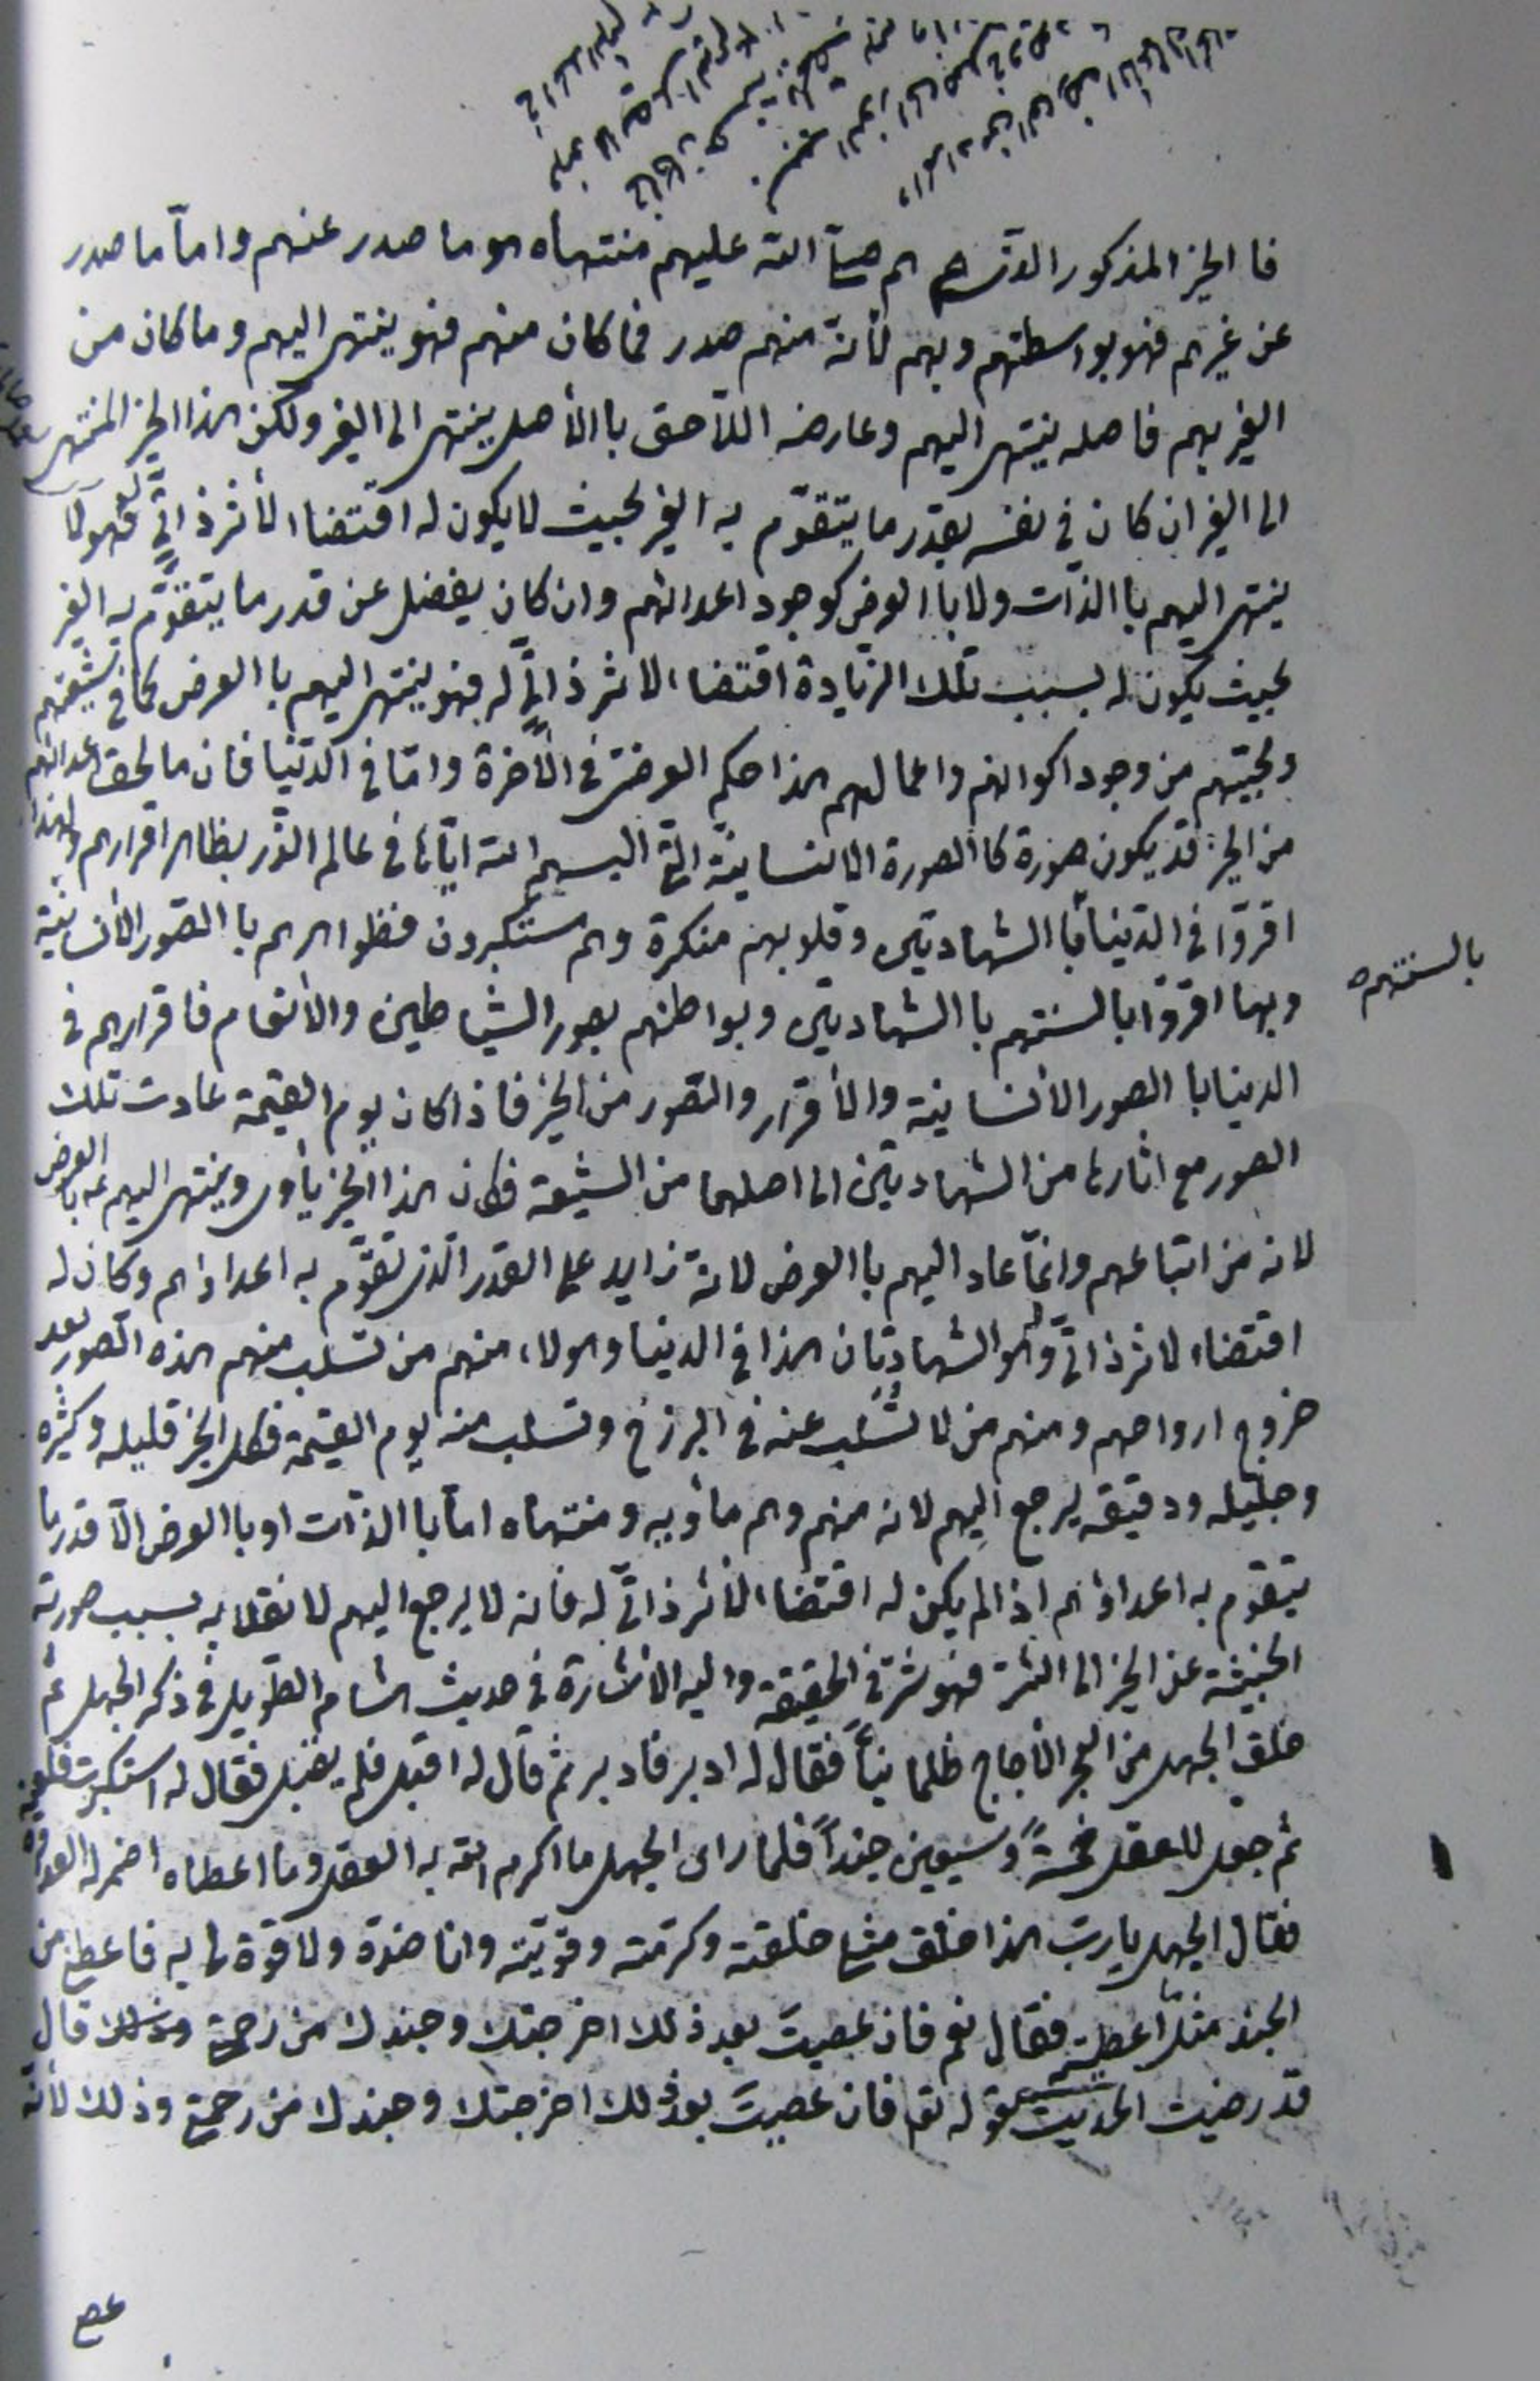 فا الخير المذكور الذى هم صلى الله عليهم منتهاه هو ما صدر عنهم واماّ ما صدر
عن غيرهم فهو بواسطتهم وبهم لأنه منهم صدر فما كان منهم فهو ينتهى اليهم وما كان من
الغير بهم فاصله ينتهى اليهم وعارضه اللاّحق باالأصل ينتهى الى الغير ولكن هذا الخير المنتهى
الى الغير ان كان فى نفسه بقدر ما يتقوّم به الغير بحيث لا يكون له اقتضاء لأثر ذاتىّ له فهو لا
ينتهى اليهم باالذّات ولا باالعرض كوجود اعدائهم وان كان يفضل عن قدر ما يتقوّم به الغير
بحيث يكون له بسبب تلك الزيادة اقتضاء لاثر ذاتىّ له فهو ينتهى اليهم باالعرض كما فى شيعتهم
ومحبّيهم من وجود اكوانهم واعمالهم هذا حكم العرضىّ فى الأخرة وامّا فى الدّنيا فان ما لحق اعدائهم
من الخير قد يكون صورة كاالصورة الانسانيّة الّتى البسهم الله ايّاها فى عالم الذّر بظاهر اقرارهم ولهذا
اقرّوا فى الدّنيا باالشهادتين وقلوبهم منكرة وهم مستكبرون فظواهرهم باالصّور الأنسانيّة
وبها اقرّوا بالسنتهم باالشهادتين وبواطنهم بصور الشّياطين والأنعام فاقرارهم فى
بالسنتهم
الدنيا باالصور الأنسانية والأقرار والصّور من الخير فاذا كان يوم القيمة عادت تلك
الصور مع اثارها من الشهادتين الى اصلهما من الشيعة فكان هذا الخير يأوى وينتهى اليهم ع باالعرض
لانه من اتباعهم وانماّ عاد اليهم باالعرض لانهّ زايد على القدر الّذى تقوّم به اعداؤهم وكان له
اقتضاء لاثر ذاتىّ وهو الشهادتان هذا فى الدنيا وهولاء منهم من تسلب منهم هذه الصّور بعد
خروج ارواحهم ومنهم من لا تسلب عنه فى البرزخ وتسلب منه يوم القيمة فكل الخير قليله وكثيره
وجليله ودقيقه يرجع اليهم لانه منهم وهم مأويه ومنتهاه امّا باالذّات او باالعرض الاّ قدر ما
يتقوم به اعداؤهم اذا لم يكن له اقتضاء لأثر ذاتىّ له فانه لا يرجع اليهم لانقلابه بسبب صورته
الخبيثة عن الخير الى الشرّ فهو شرّ فى الحقيقة واليه الأشارة فى حديث هشام الطّويل فى ذكر الجهل ثم
خلق الجهل من البحر الأجاج ظلمانياً فقال له ادبر فادبر ثم قال له اقبل فلم يقبل فقال له استكبرت فلعنه
ثم جعل للعقل خمسةً وسبعين جنداً فلما راى الجهل ما اكرم الله به العقل وما اعطاه اضمر له العداوة
فقال الجهل يا ربّ هذا خلق مثلى خلقته وكرّمته وقوّيته وانا ضدّه ولا قوة لى به فاعطنى من
الجند مثل ما اعطيته فقال نعم فان عصيتَ بعد ذلك اخرجتك وجندك من رحمتى قال
قد رضيت الحديث فقوله تع فان عصيتَ بعد ذلك اخرجتك وجندك من رحمتى وذلك لأنّه
عصى